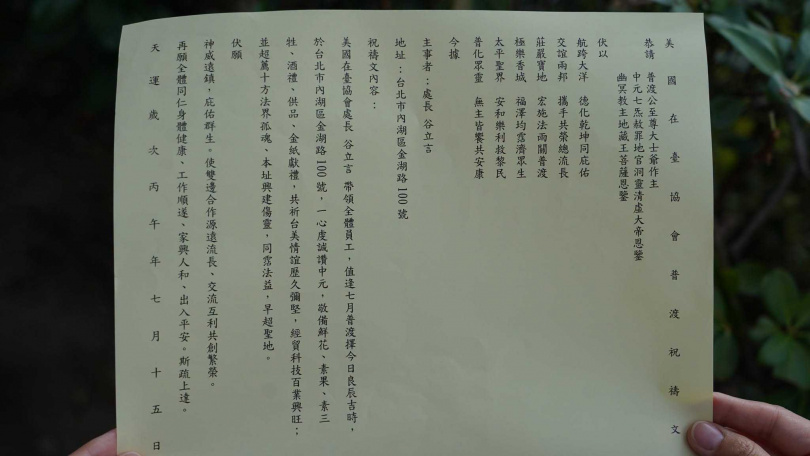 美國在臺協會普渡祝禱文
恭請 普渡公至尊大士爺作主
中元七炁赦罪地官洞靈清虛大帝恩鑒
幽冥教主地藏王菩薩恩鑒
伏以
航跨大洋 德化乾坤同庇佑
交誼兩邦 攜手共榮總流長
莊嚴寶地 宏施法雨闢普渡
極樂香城 福澤均霑濟眾生
太平聖界 安和樂利救黎民
普化眾靈 無主皆饗共安康
今據
主事者：處長 谷立言
地址：台北市內湖區金湖路100號
祝禱文內容：
美國在臺協會處長 谷立言 帶領全體員工，值逢七月普渡擇今日良辰吉時，
於台北市內湖區金湖路100號，一心虔誠讚中元，敬備鮮花、素果、素三
牲、酒禮、供品、金紙獻禮，共祈台美情誼歷久彌堅，經貿科技百業興旺；
並超薦十方法界孤魂、本址興建傷靈，同霑法益，早超聖地。
伏願
神威遠鎮，庇佑群生。使雙邊合作源遠流長、交流互利共創繁榮。
再願全體同仁身體健康、工作順遂、家興人和、出入平安。斯疏上達。
天運歲次丙午年七月十五日